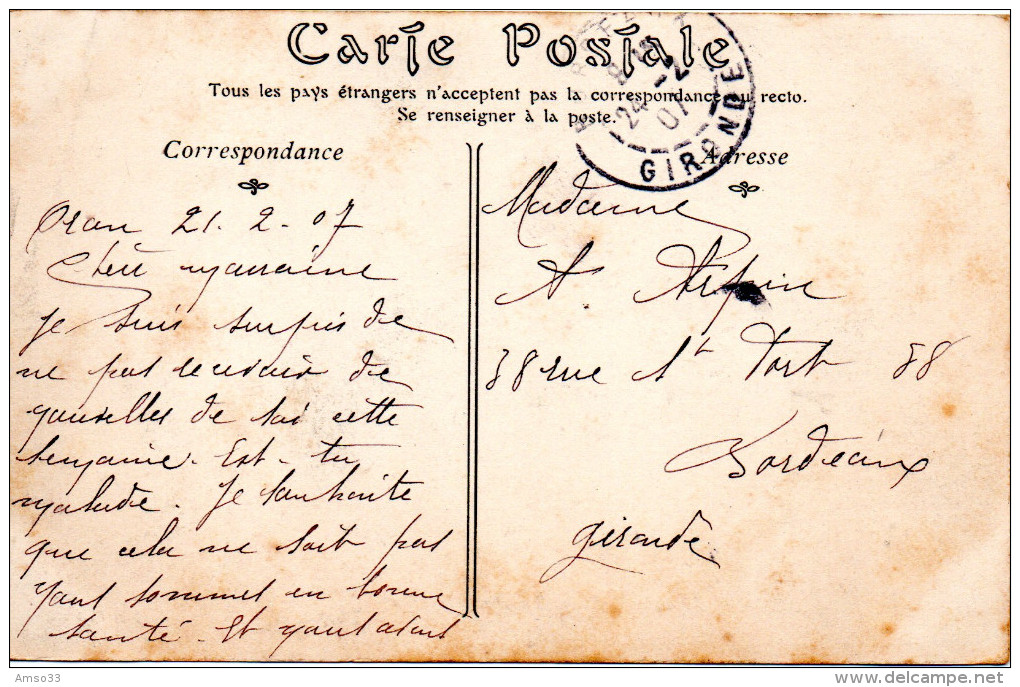 Carte Postale
Tous les pays étrangers n'acceptent pas la correspondance au recto.
Se renseigner à la poste.
Correspondance
Adresse
BORDEAUX
8
24 -2
07
GIRONDE
Oran 21. 2. 07
Chère marraine
je suis surpris de
ne pas recevoir de
nouvelles de toi cette
semaine. Est-tu
malade. Je souhaite
que cela ne soit pas
nous sommes en bonne
santé. Et nous
Madame
A. Arpin
38 rue St 38
Bordeaux
Gironde
Amso33
delcampe.net